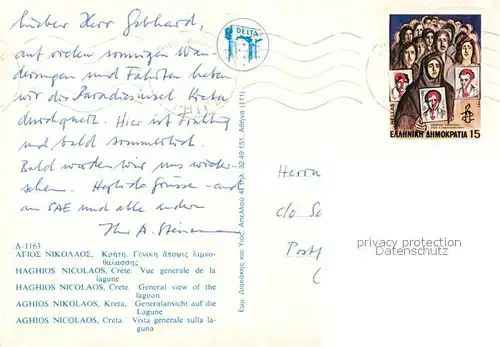 lieber Herr Gebhard,
auf vielen sonnigen Wan-
derungen und Fahrten haben
wir die Paradiesinsel Kreta
durchquert. Hier ist Frühling
und bald sommerlich.
Bald werden wir uns wieder-
sehen. Herzliche Grüsse - auch
an SAE und alle anderen
Ihr A.
DELTA
ΕΛΛΗΝΙΚΗ ΔΗΜΟΚΡΑΤΙΑ 15
Εμμ. Διακάκης και Υιός, Απελλού 4, τηλ. 32 49 151, Αθήνα (111)
Herrn
c/o
Postf
privacy protection
Δ-1163
ΑΓΙΟΣ ΝΙΚΟΛΑΟΣ, Κρήτη. Γενική ἄποψις λιμνο-
θαλάσσης
HAGHIOS NICOLAOS, Crète. Vue generale de la
lagune
HAGHIOS NICOLAOS, Crete. General view of the
lagoon
AGHIOS NIKOLAOS, Kreta, Generalansicht auf die
Lagune
AGHIOS NICOLAOS, Creta. Vista generale sulla la-
guna